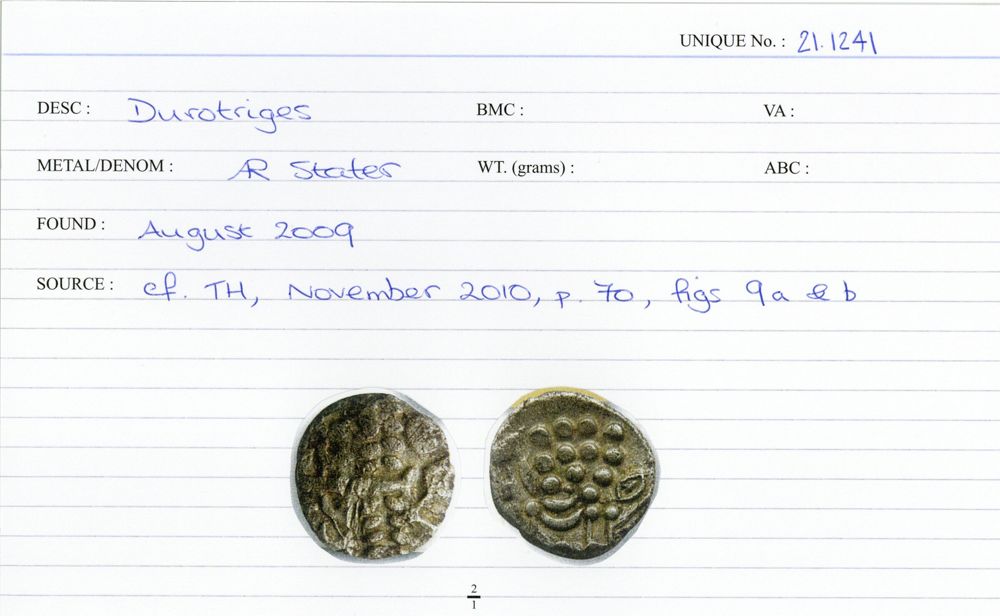 UNIQUE No. : 21.1241
DESC : Durotriges BMC : VA :
METAL/DENOM : AR Stater WT. (grams) : ABC :
FOUND : August 2009
SOURCE : cf. TH, November 2010, p. 70, figs 9a & b
2
1